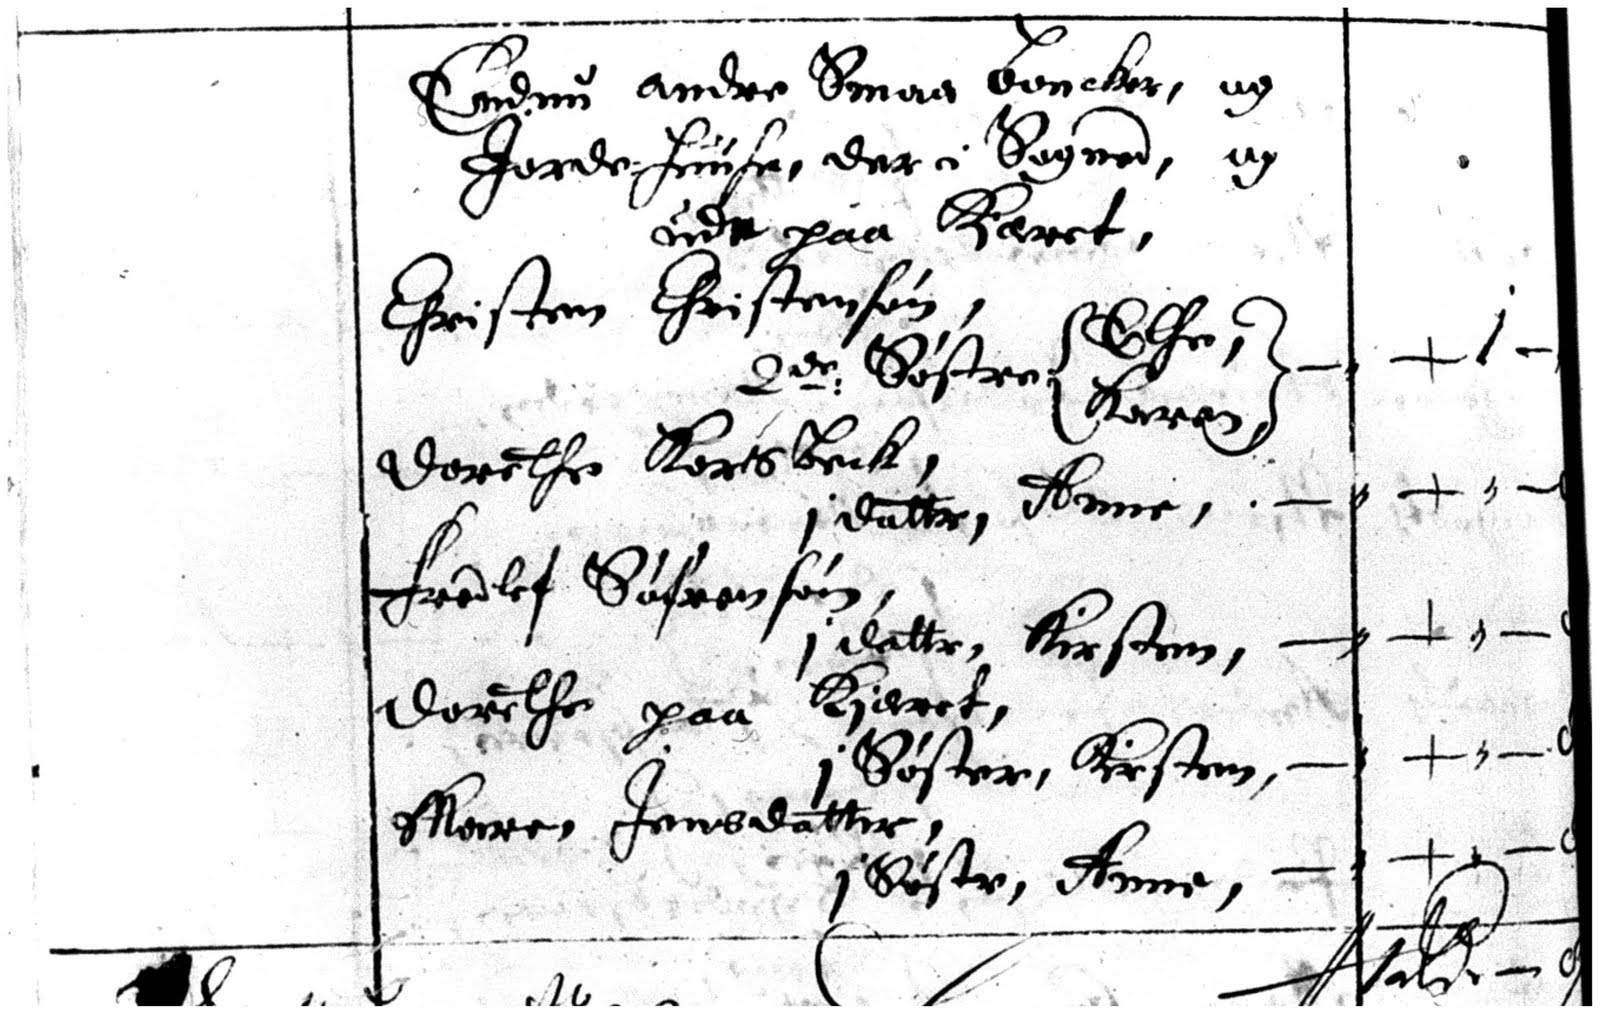 Endnu andre Smaa boncker, og
Jorde-huuse, der i Sogned, og
ude paa Kjæret,
Christen Christensøn,
2de: Søstre { Elhe,
Karen, } — „ + 1 —
Dorethe Kortsbeck,
j datter, Anne, . — „ + „ —
Fredlef Søfrensøn,
j datter, Kirsten, — „ + „ —
Dorethe paa Kjæret,
j Søster, Kirsten, — „ + „ —
Maren Jensdatter,
j Søster, Anne, — „ + „ —